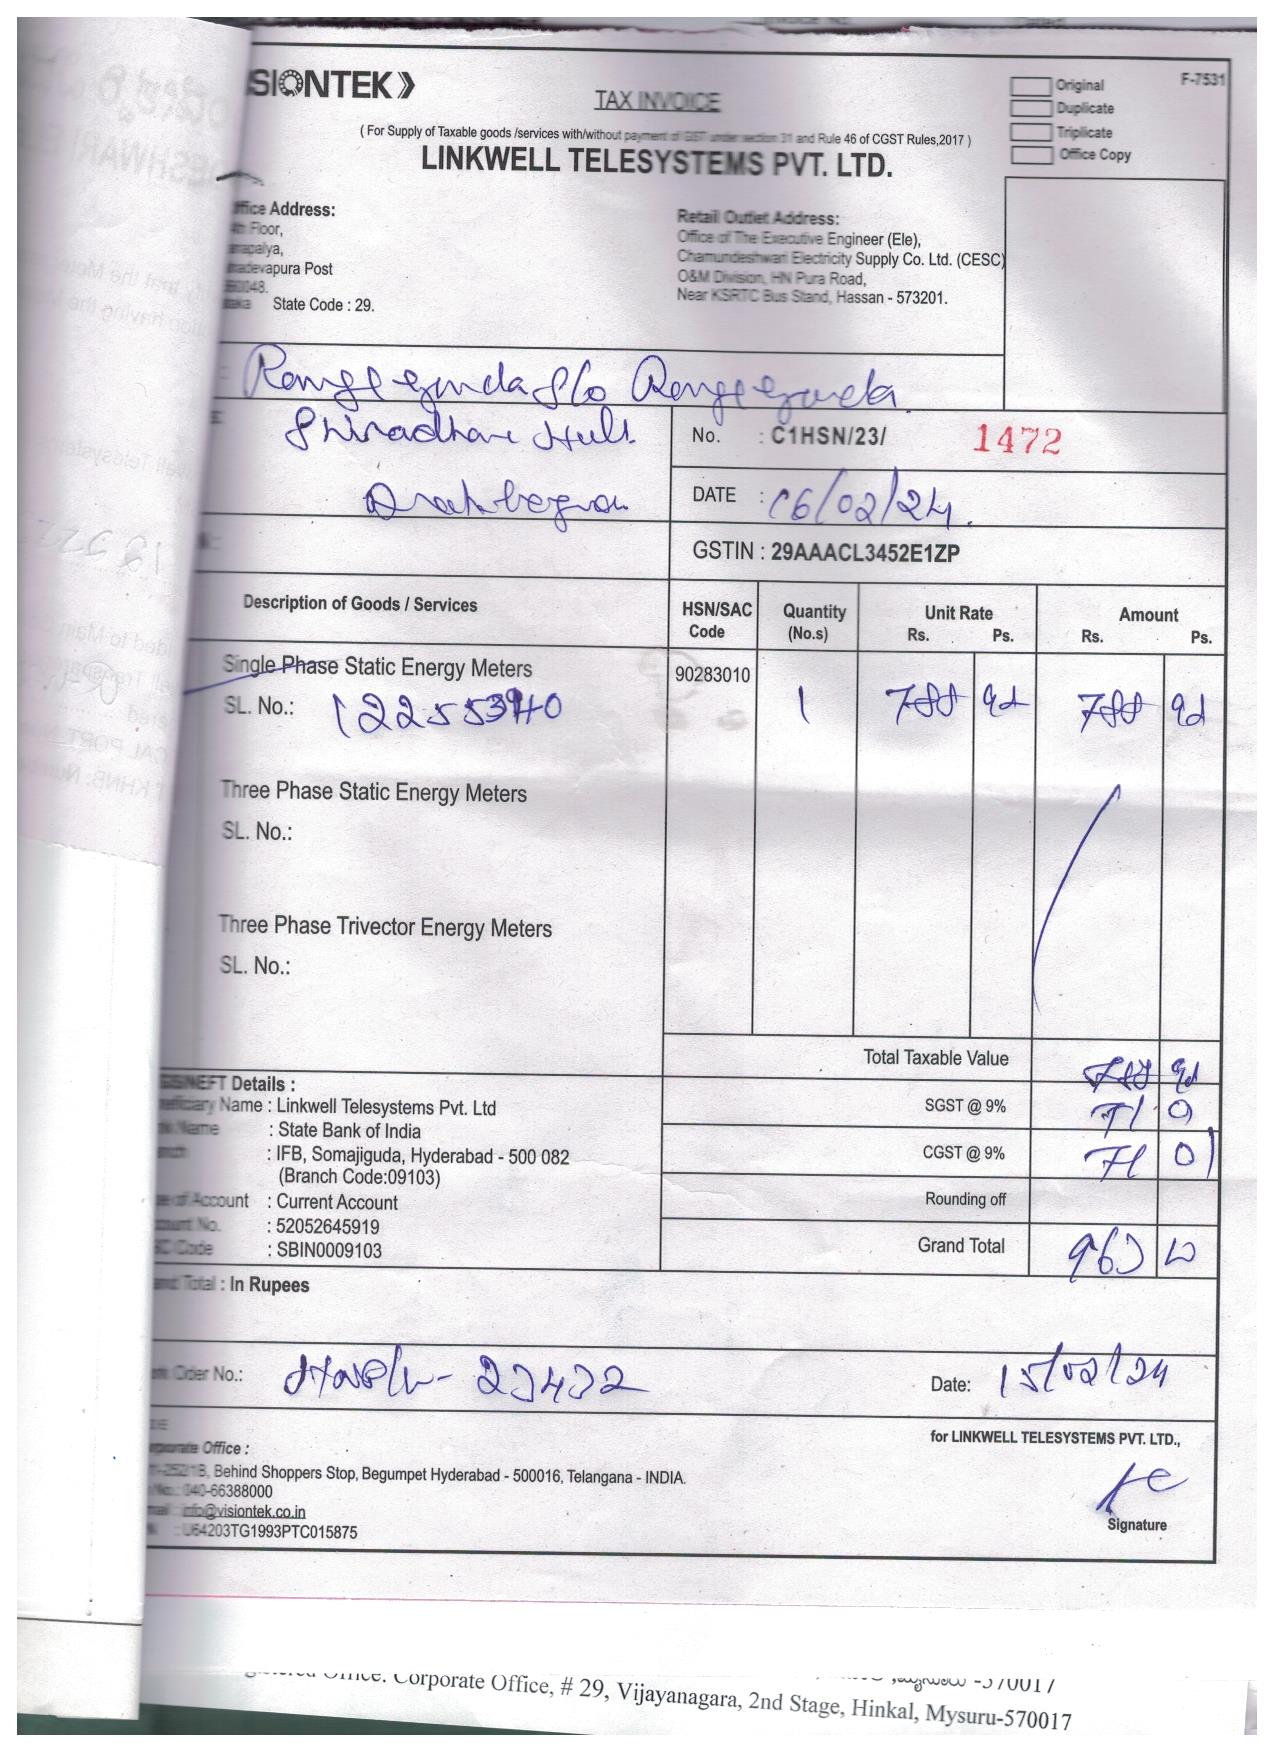 SIONTEK
F-7531
TAX INVOICE
Original
Duplicate
Triplicate
Office Copy
( For Supply of Taxable goods /services with/without payment of GST under section 31 and Rule 46 of CGST Rules,2017 )
LINKWELL TELESYSTEMS PVT. LTD.
Office Address:
Floor,
Post
State Code : 29.
Retail Outlet Address:
Office of The Executive Engineer (Ele),
Chamundeshwari Electricity Supply Co. Ltd. (CESC)
O&M Division, HN Pura Road,
Near KSRTC Bus Stand, Hassan - 573201.
S/o
No. : C1HSN/23/ 1472
DATE : 06/02/24.
GSTIN : 29AAACL3452E1ZP
Description of Goods / Services
HSN/SAC Code
Quantity (No.s)
Unit Rate
Rs. Ps.
Amount
Rs. Ps.
Single Phase Static Energy Meters 90283010
SL. No.: 1 788 92 788 92
Three Phase Static Energy Meters
SL. No.:
Three Phase Trivector Energy Meters
SL. No.:
Total Taxable Value 788 92
SGST @ 9% 71 0
CGST @ 9% 71 01
Rounding off
Grand Total
NEFT Details :
Name : Linkwell Telesystems Pvt. Ltd
Name : State Bank of India
: IFB, Somajiguda, Hyderabad - 500 082
(Branch Code:09103)
of Account : Current Account
No. : 52052645919
Code : SBIN0009103
Total : In Rupees
Order No.: 23432
Date: 15/02/24
for LINKWELL TELESYSTEMS PVT. LTD.,
Signature
Office :
Behind Shoppers Stop, Begumpet Hyderabad - 500016, Telangana - INDIA.
040-66388000
info@visiontek.co.in
: U64203TG1993PTC015875
Office: Corporate Office, # 29, Vijayanagara, 2nd Stage, Hinkal, Mysuru-570017
-570017